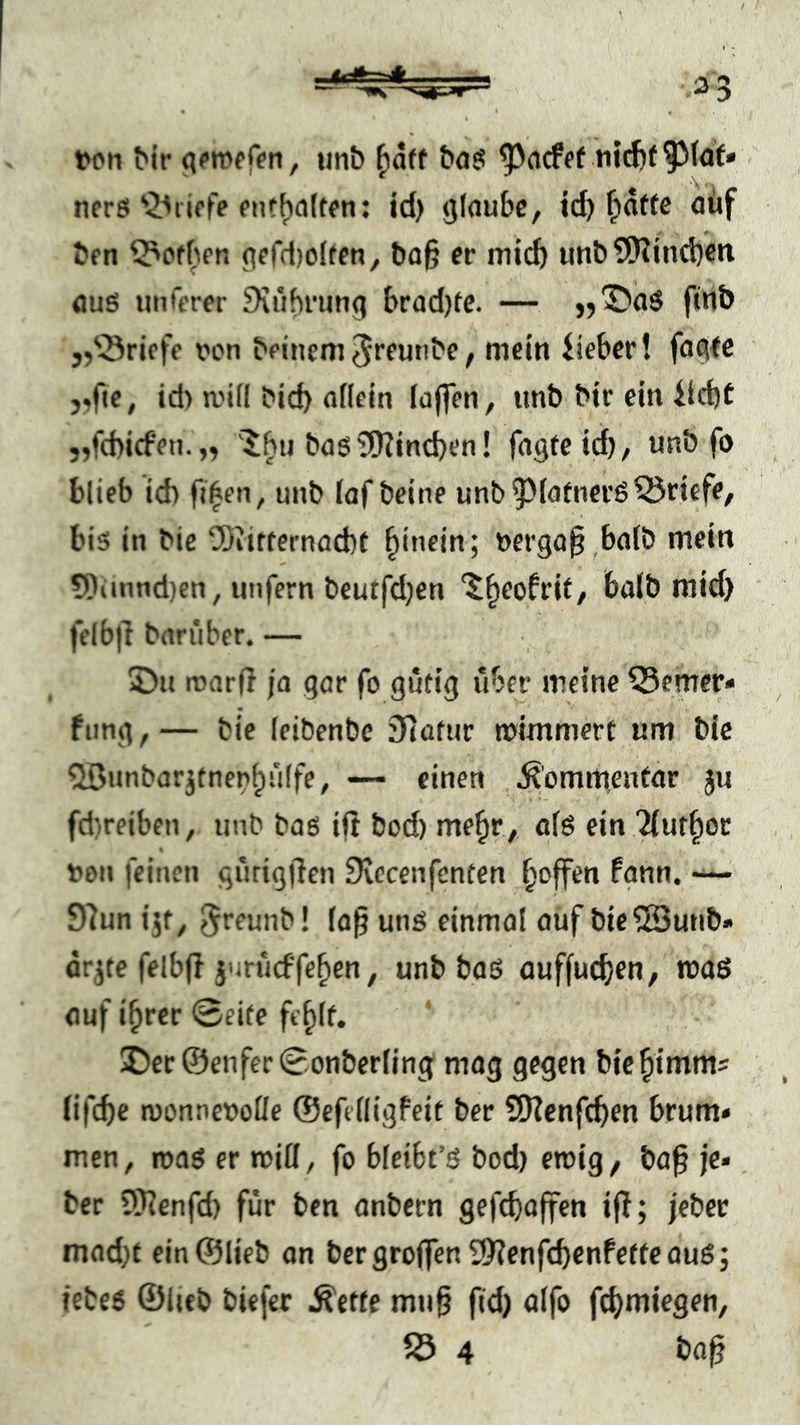 23
von dir gewesen, und hätt das Packet nicht Plat-
ners Briefe enthalten: ich glaube, ich hätte auf
den Bothen gescholten, daß er mich und Minchen
aus unserer Rührung brachte. — „Das sind
„Briefe von deinem Freunde, mein Lieber! sagte
„sie, ich will dich allein lassen, und dir ein Licht
„schicken.„ Thu das Minchen! sagte ich, und so
blieb ich sitzen, und las deine und Platners Briefe,
bis in die Mitternacht hinein; vergaß bald mein
Männchen, unsern deutschen Theokrit, bald mich
selbst darüber. —
Du warst ja gar so gütig über meine Bemer-
kung, — die leidende Natur wimmert um die
Wundarztneyhülfe, — einen Kommentar zu
schreiben, und das ist doch mehr, als ein Author
von seinen gütigsten Recensenten hoffen kann. —
Nun izt, Freund! laß uns einmal auf die Wund-
ärzte selbst zurücksehen, und das aufsuchen, was
auf ihrer Seite fehlt.
Der Genfer Sonderling mag gegen die himm-
lische wonnevolle Geselligkeit der Menschen brum-
men, was er will, so bleibt's doch ewig, daß je-
der Mensch für den andern geschaffen ist; jeder
macht ein Glied an der grossen Menschenkette aus;
jedes Glied dieser Kette muß sich also schmiegen,
B 4 daß